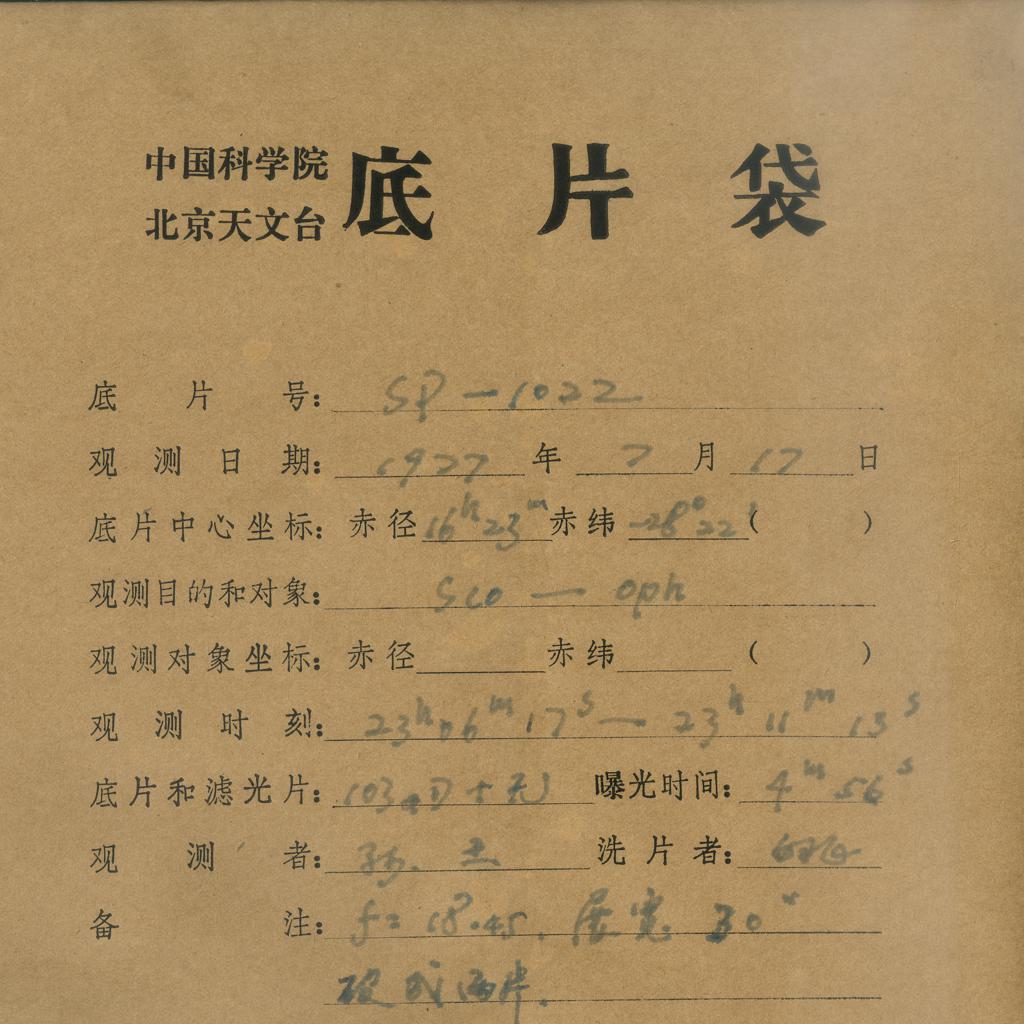 中国科学院
北京天文台
底片袋
底片号： SP-1022
观测日期： 1977 年 7 月 17 日
底片中心坐标：赤径 16h 23m 赤纬 -28°22' （ ）
观测目的和对象： Sco — oph
观测对象坐标：赤径 赤纬 （ ）
观测时刻： 23h 06m 17s — 23h 11m 13s
底片和滤光片： 103aD+无 曝光时间： 4m 56s
观测者： 孙. 洗片者：
备注： f= 18.45. 展宽 30"
破成两片.